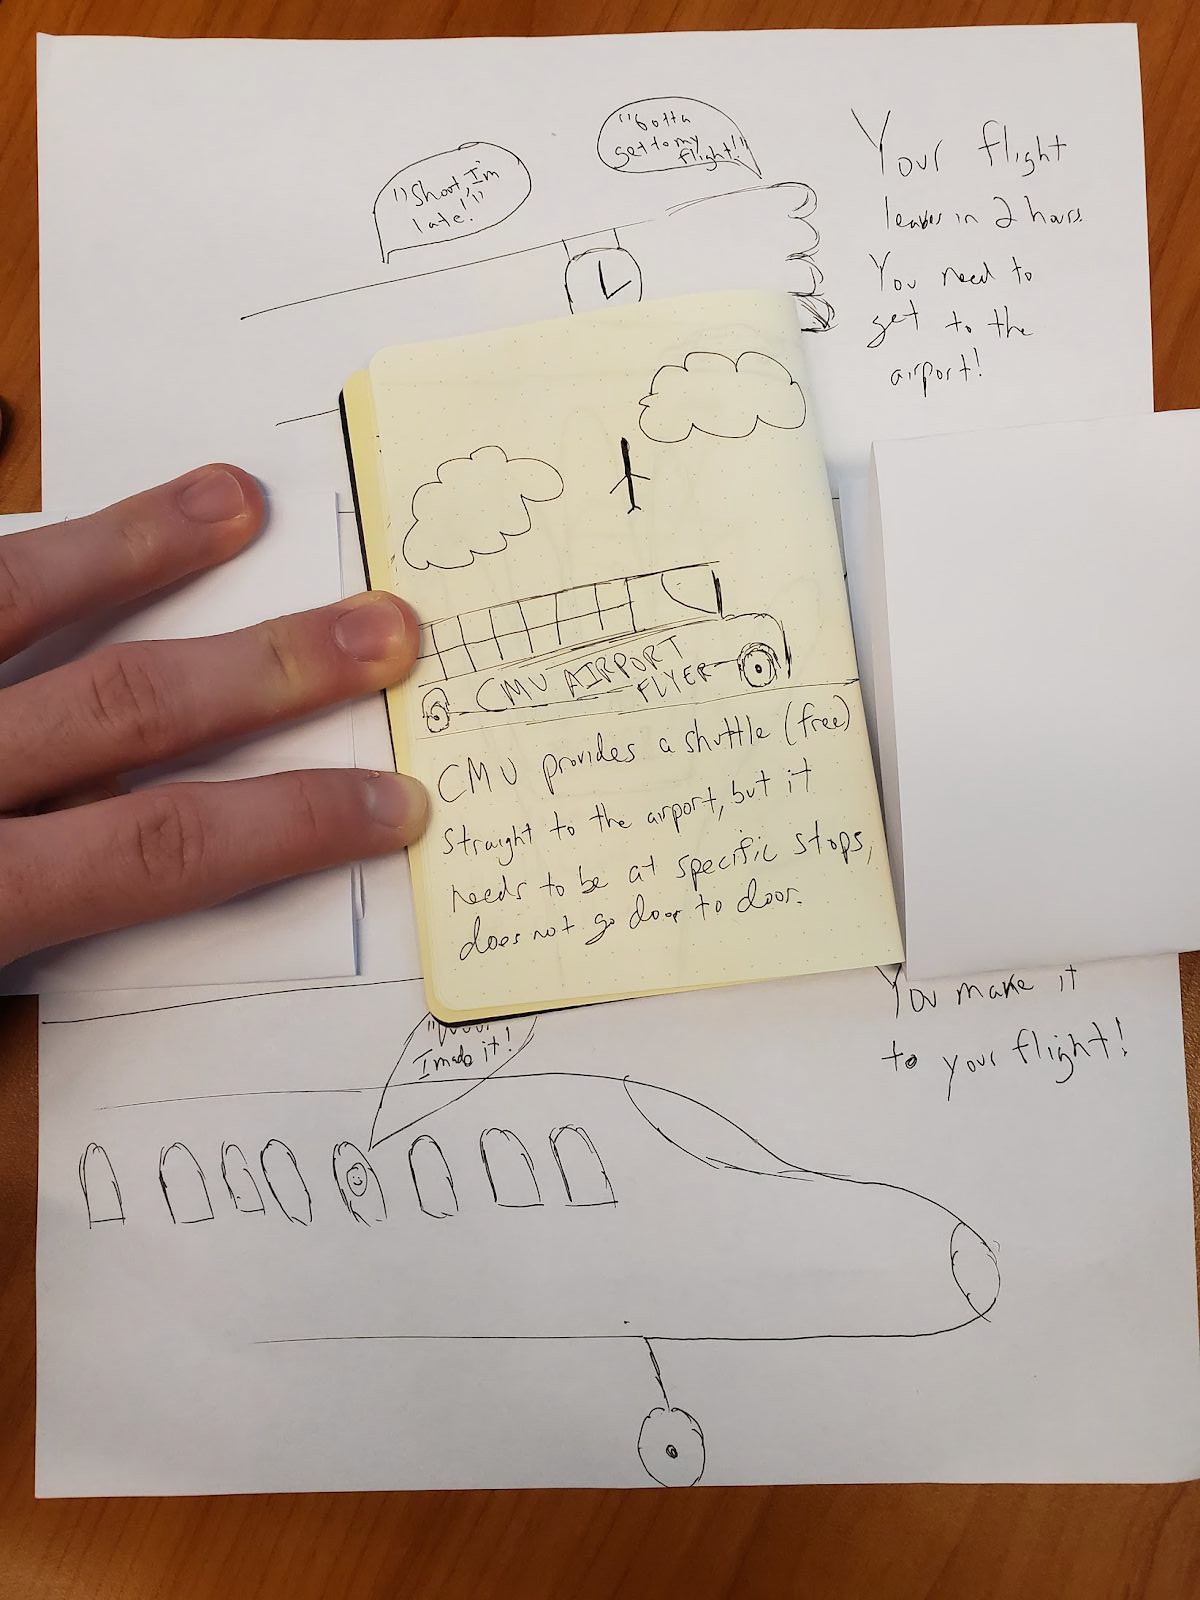 "Gotta
get to my
flight!"
"Shoot, I'm
late!"
Your flight
leaves in 2 hours.
You need to
get to the
airport!
CMU AIRPORT
FLYER
CMU provides a shuttle (free)
straight to the airport, but it
needs to be at specific stops,
does not go door to door.
I made it!
You make it
to your flight!